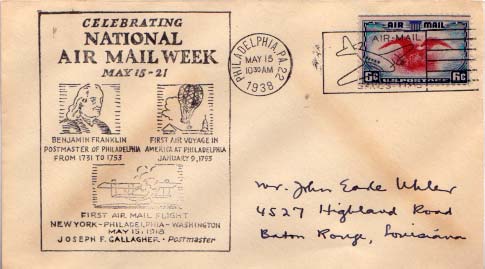 CELEBRATING
NATIONAL
AIR MAIL WEEK
MAY 15-21
BENJAMIN FRANKLIN
POSTMASTER OF PHILADELPHIA
FROM 1731 TO 1753
FIRST AIR VOYAGE IN
AMERICA AT PHILADELPHIA
JANUARY 9, 1793
FIRST AIR MAIL FLIGHT
NEW YORK-PHILADELPHIA-WASHINGTON
MAY 15, 1918
JOSEPH F. GALLAGHER - Postmaster
PHILADELPHIA, PA. 22
MAY 15
10 30 AM
1938
AIR-MAIL
SAVES TIME
AIR MAIL
6¢ U.S. POSTAGE 6¢
Mr. John Earle Uhler
4527 Highland Road
Baton Rouge, Louisiana